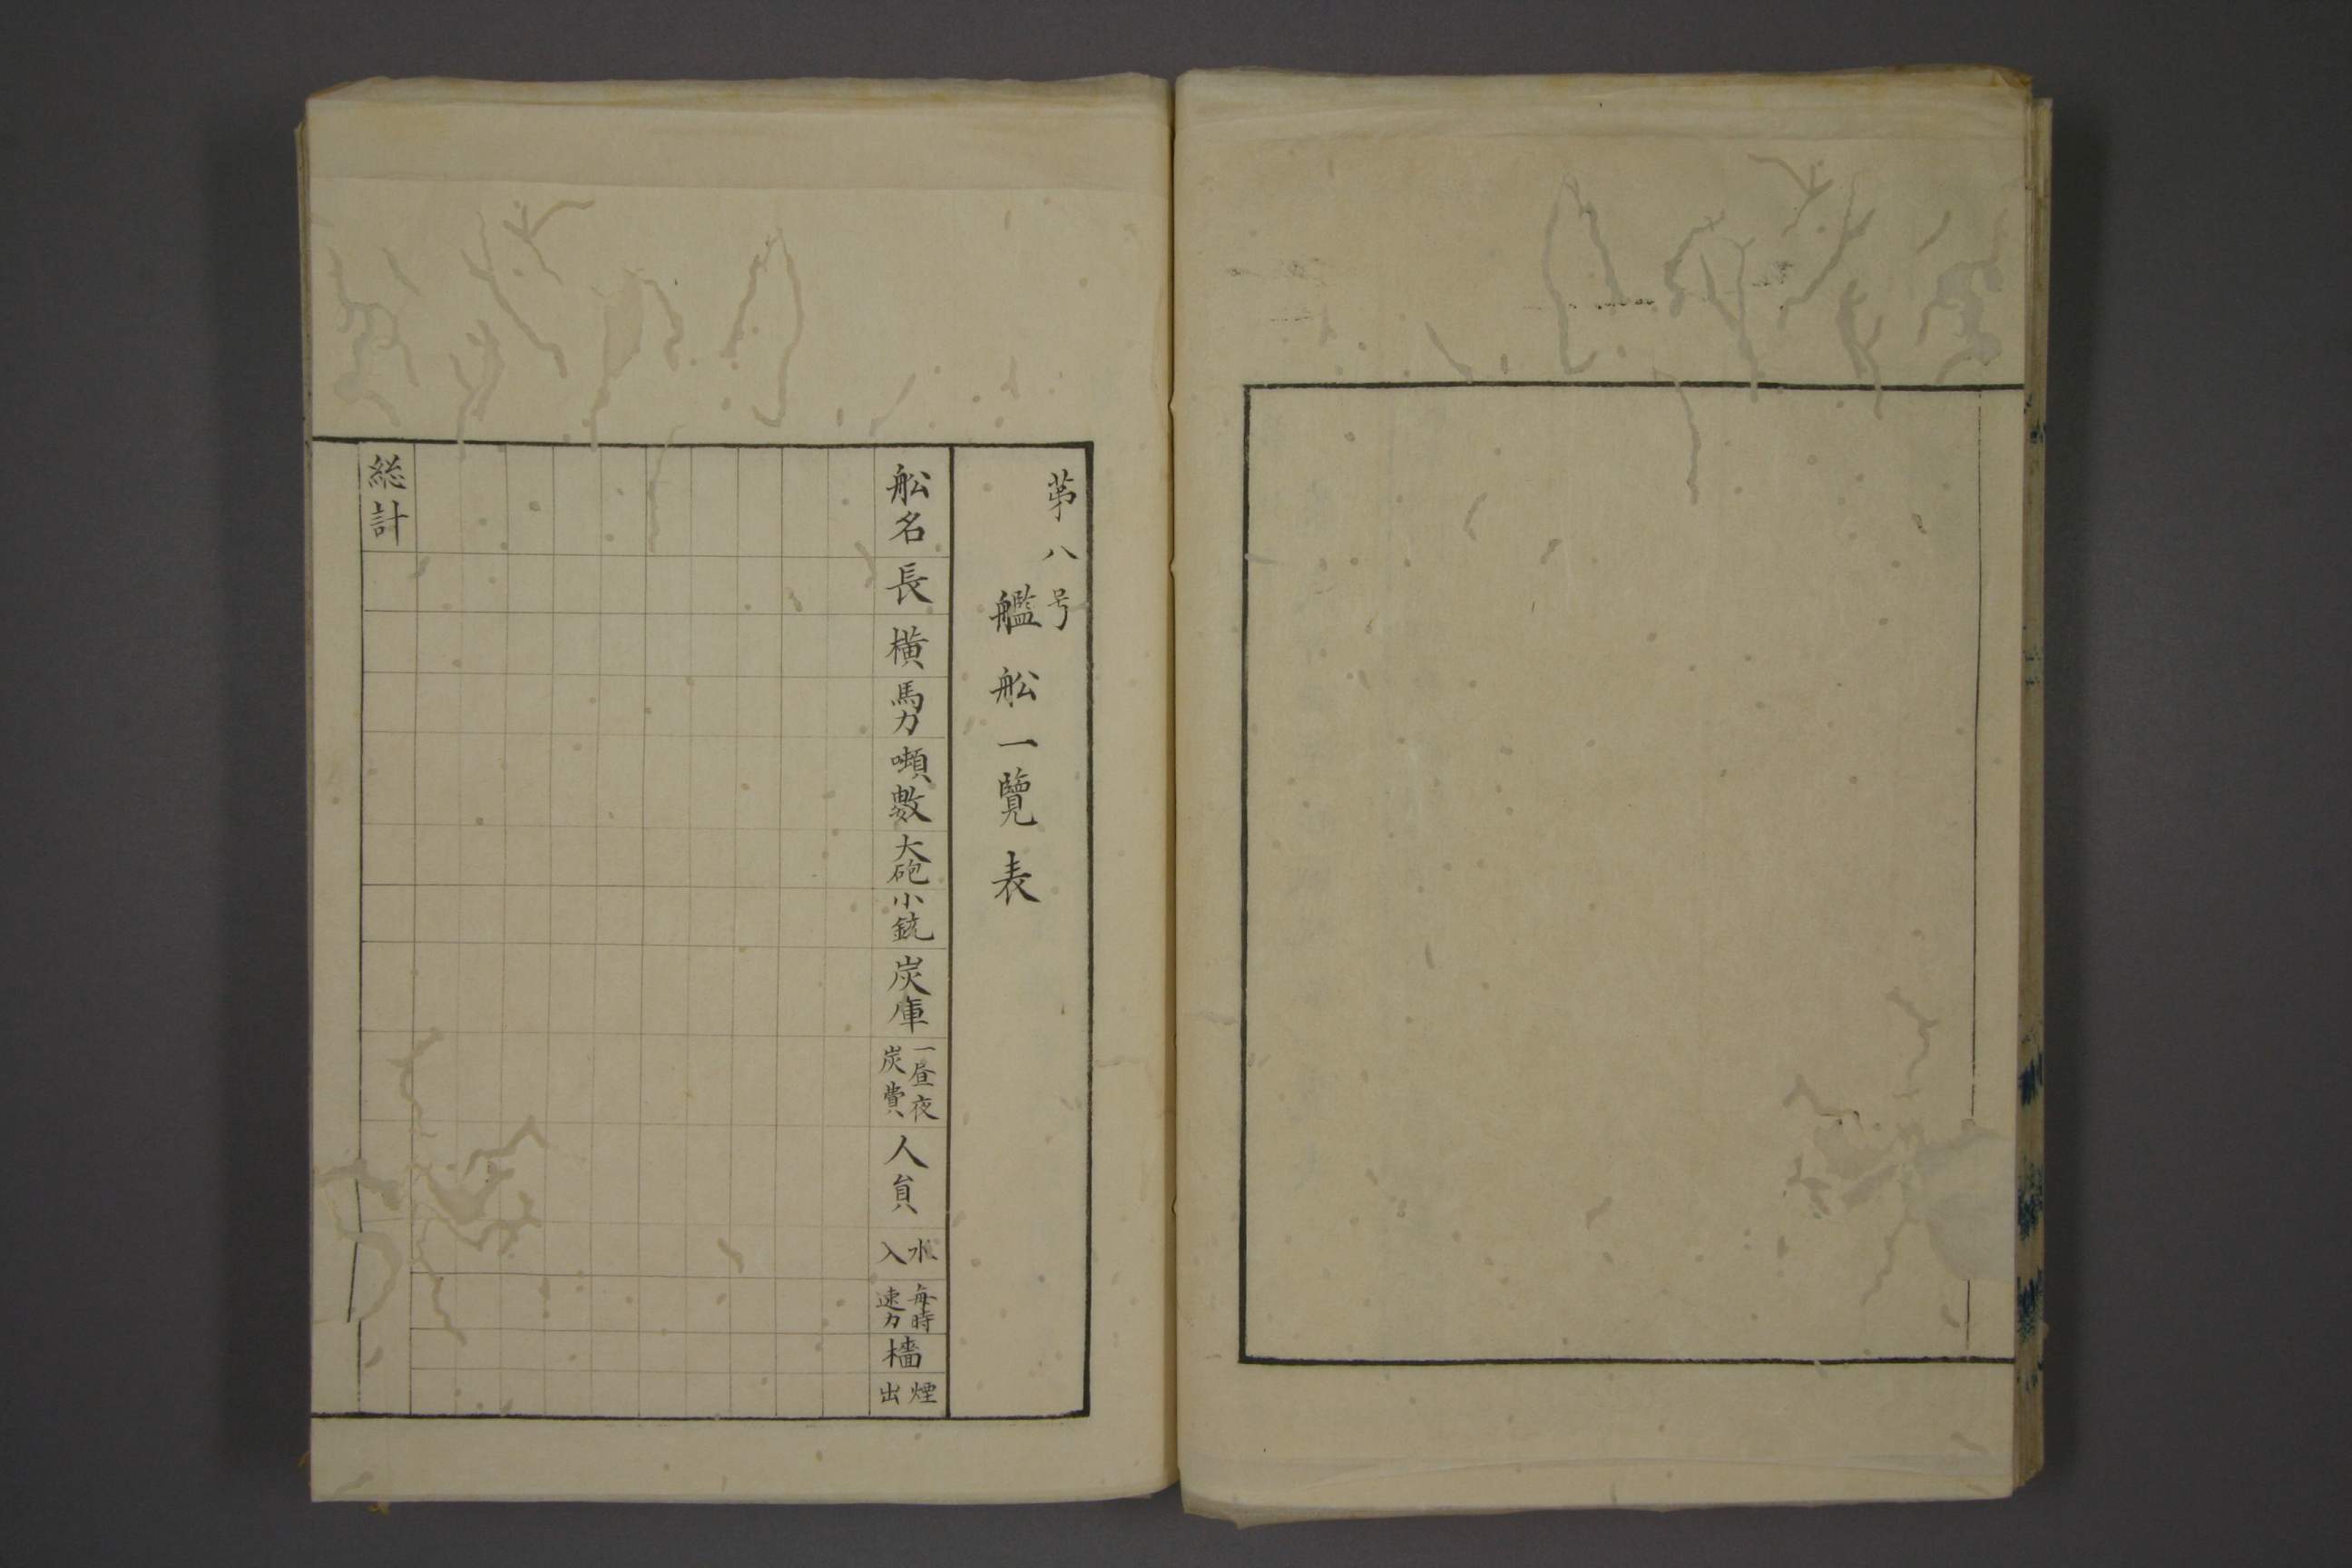 第八号
艦舩一覽表
舩名
長
横
馬力
噸數
大砲
小銃
炭庫
一昼夜
炭費
人員
水
入
毎時
速力
檣
煙
出
総計